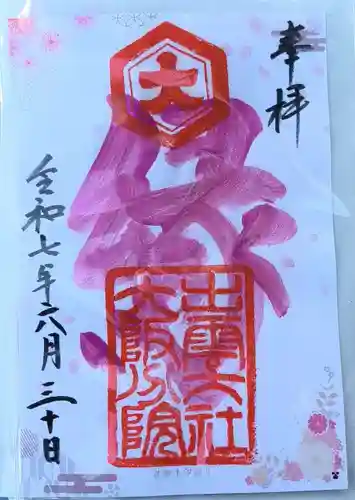 奉拝
大
出雲大社
大阪分院
令和七年六月三十日